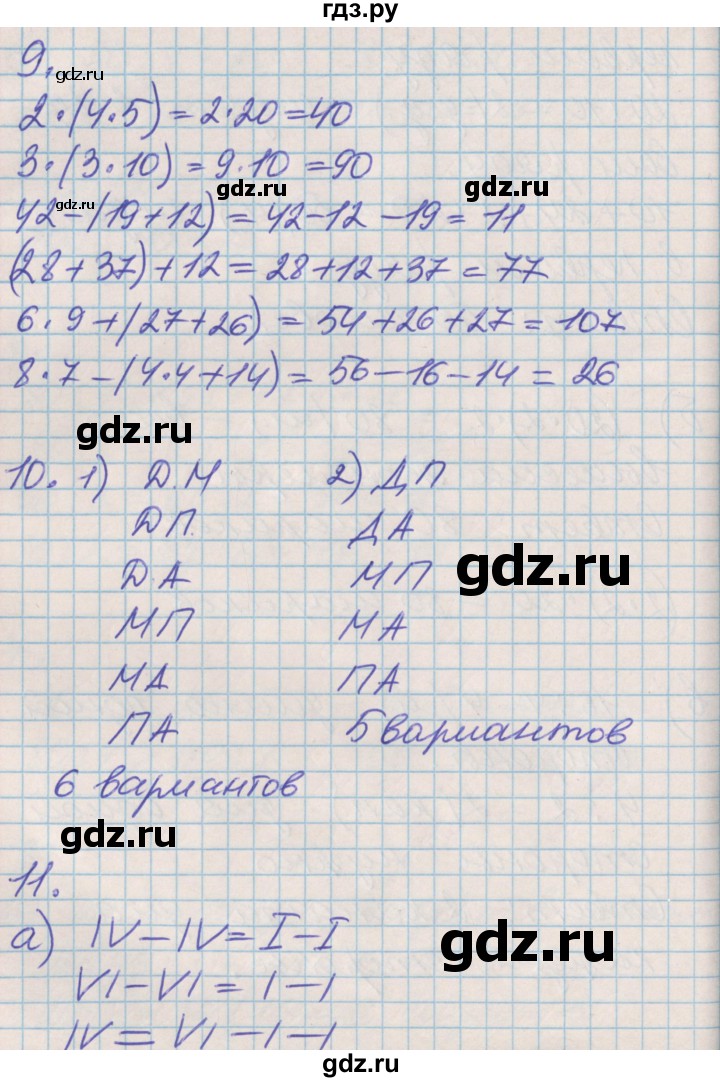 гдз.ру
9.
gdz.ru
2·(4·5)=2·20=40
3·(3·10)=9·10=90
gdz.ru
gdz.ru
gdz.ru
42-(19+12)=42-12-19=11
(28+37)+12=28+12+37=77
6·9+(27+26)=54+26+27=107
8·7-(4·4+14)=56-16-14=26
gdz.ru
10. 1) Д.М 2) ДП
ДП. ДА
gdz.ru
Д.А МП
МП МА
МА ПА
ПА 5 вариантов
6 вариантов
gdz.ru
11.
а) IV-IV=I-I
gdz.ru
VI-VI=I-I
IV=VI-I-I
gdz.ru